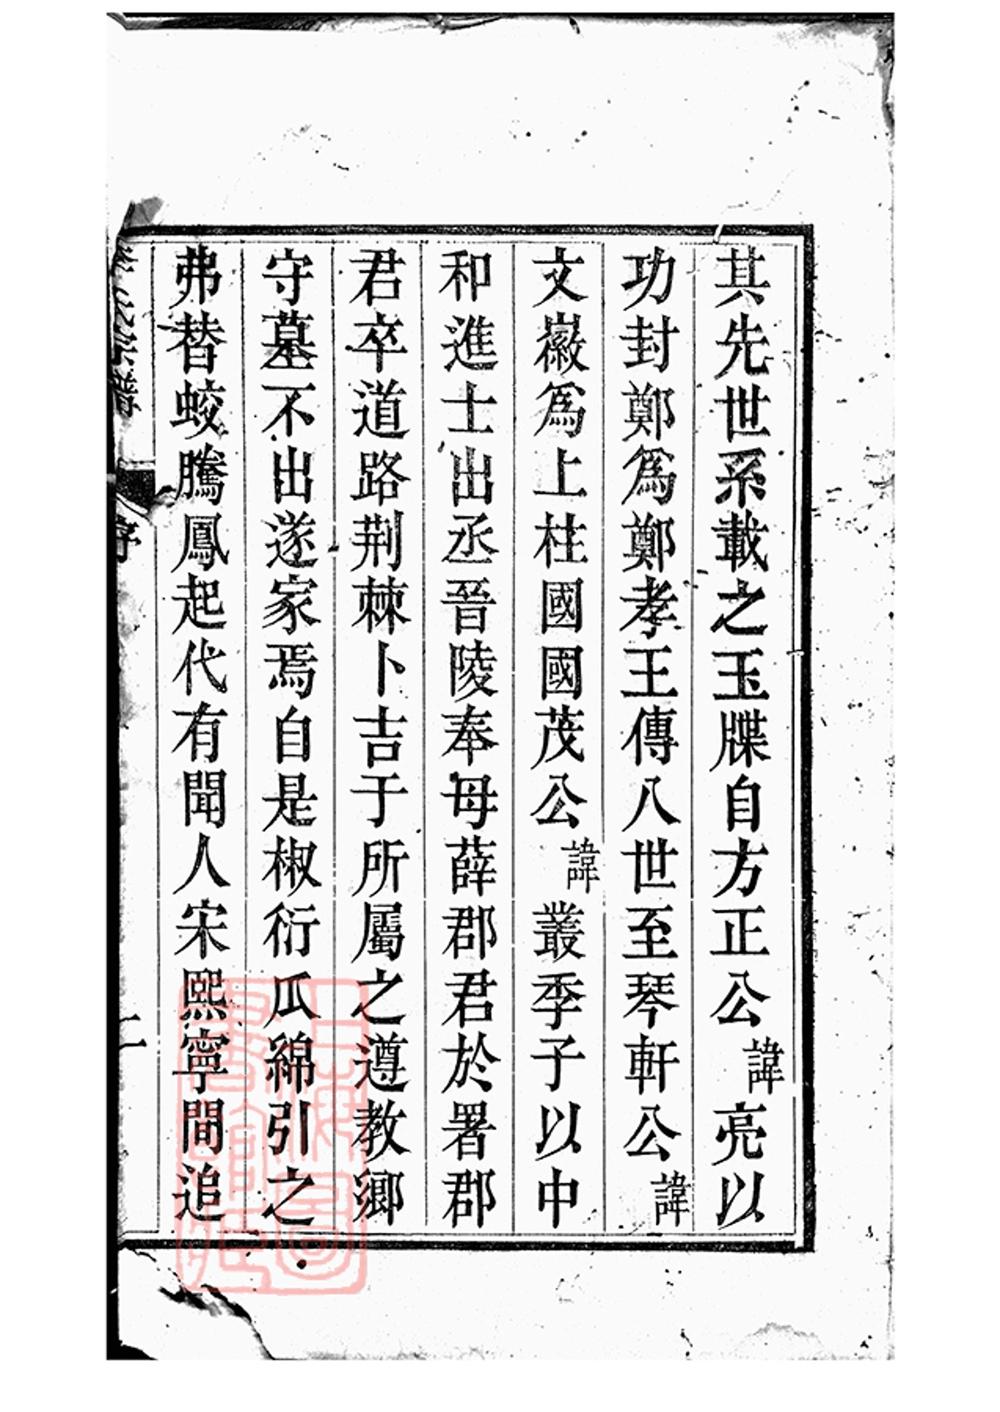 其先世系載之玉牒自方正公諱亮以
功封鄭爲鄭孝王傳八世至琴軒公諱
文嶶爲上柱國國茂公諱叢季子以中
和進士出丞晉陵奉母薛郡君於署郡
君卒道路荆棘卜吉于所屬之遵教鄉
守墓不出遂家焉自是椒衍瓜綿引之
弗替蛟騰鳳起代有聞人宋熙寧間追
李氏宗譜 序 二
上海圖書館藏